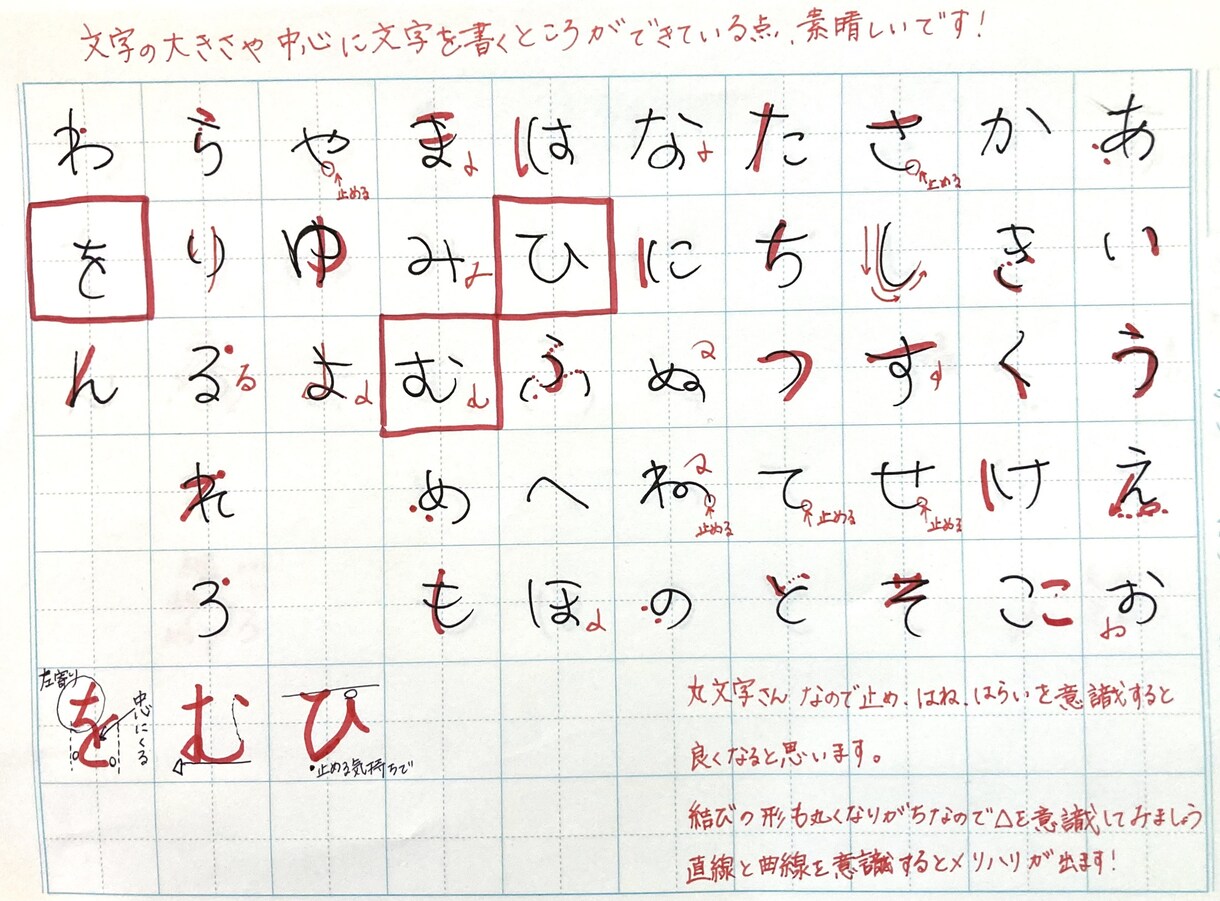 文字の大きさや中心に文字を書くところができている点、素晴しいです!
あ か さ た な は ま や ら わ
止める
止める
い き し ち に ひ み ゆ り を
う く す つ ぬ ふ む よ る ん
る
え け せ て ね へ め れ
止める
止める
止める
お こ そ と の ほ も ろ
こ
お
左寄り
を
中心にくる
む
ひ
・止める気持ちで
丸文字さんなので止め、はね、はらいを意識すると
良くなると思います。
結びの形も丸くなりがちなので△を意識してみましょう
直線と曲線を意識するとメリハリが出ます!